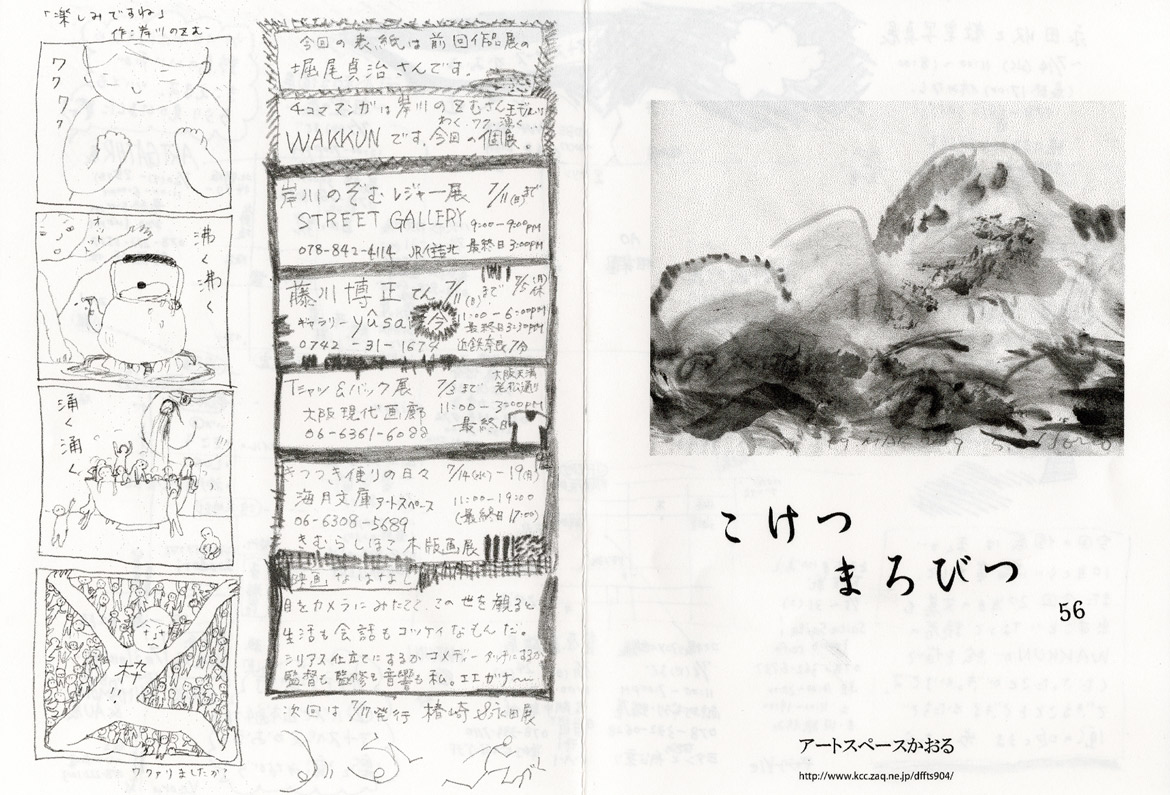 「楽しみですね」
作:岸川のぞむ
ワクワクワク
沸く沸く
涌く涌く
枠!!
ワクありましたか?
今回の表紙は前回作品展の
堀尾貞治さんです。
4コママンガは岸川のぞむさん
わく、ワク、湧く
WAKKUN です。今回の個展。
岸川のぞむレジャー展 7/11(日)まで
STREET GALLERY 9:00-9:00PM
078-842-4114 JR住吉北 最終日3:00PM
藤川博正てん 7/11(日)まで 7/5(月)休
ギャラリーyûsai 今 11:00-6:00PM
最終日3:30PM
0742-31-1674 近鉄奈良7分
Tシャツ&バック展 7/3まで 大阪天満
大阪現代画廊 11:00-3:00PM
06-6361-6088 最終日
きつつき便りの日々 7/14(水)-19(月)
海月文庫アートスペース 11:00-19:00
06-6308-5689 (最終日17:00)
きむらしほこ 木版画展
映画なはなし
目をカメラにみたてて、この世を観ると
生活も会話もコッケイなもんだ。
シリアス仕立てにするかコメディータッチにするか
監督も監修も音響も私。エエガナ〜
次回は7/17発行
こけつ
まろびつ
56
アートスペースかおる
http://www.kcc.zaq.ne.jp/dffts904/